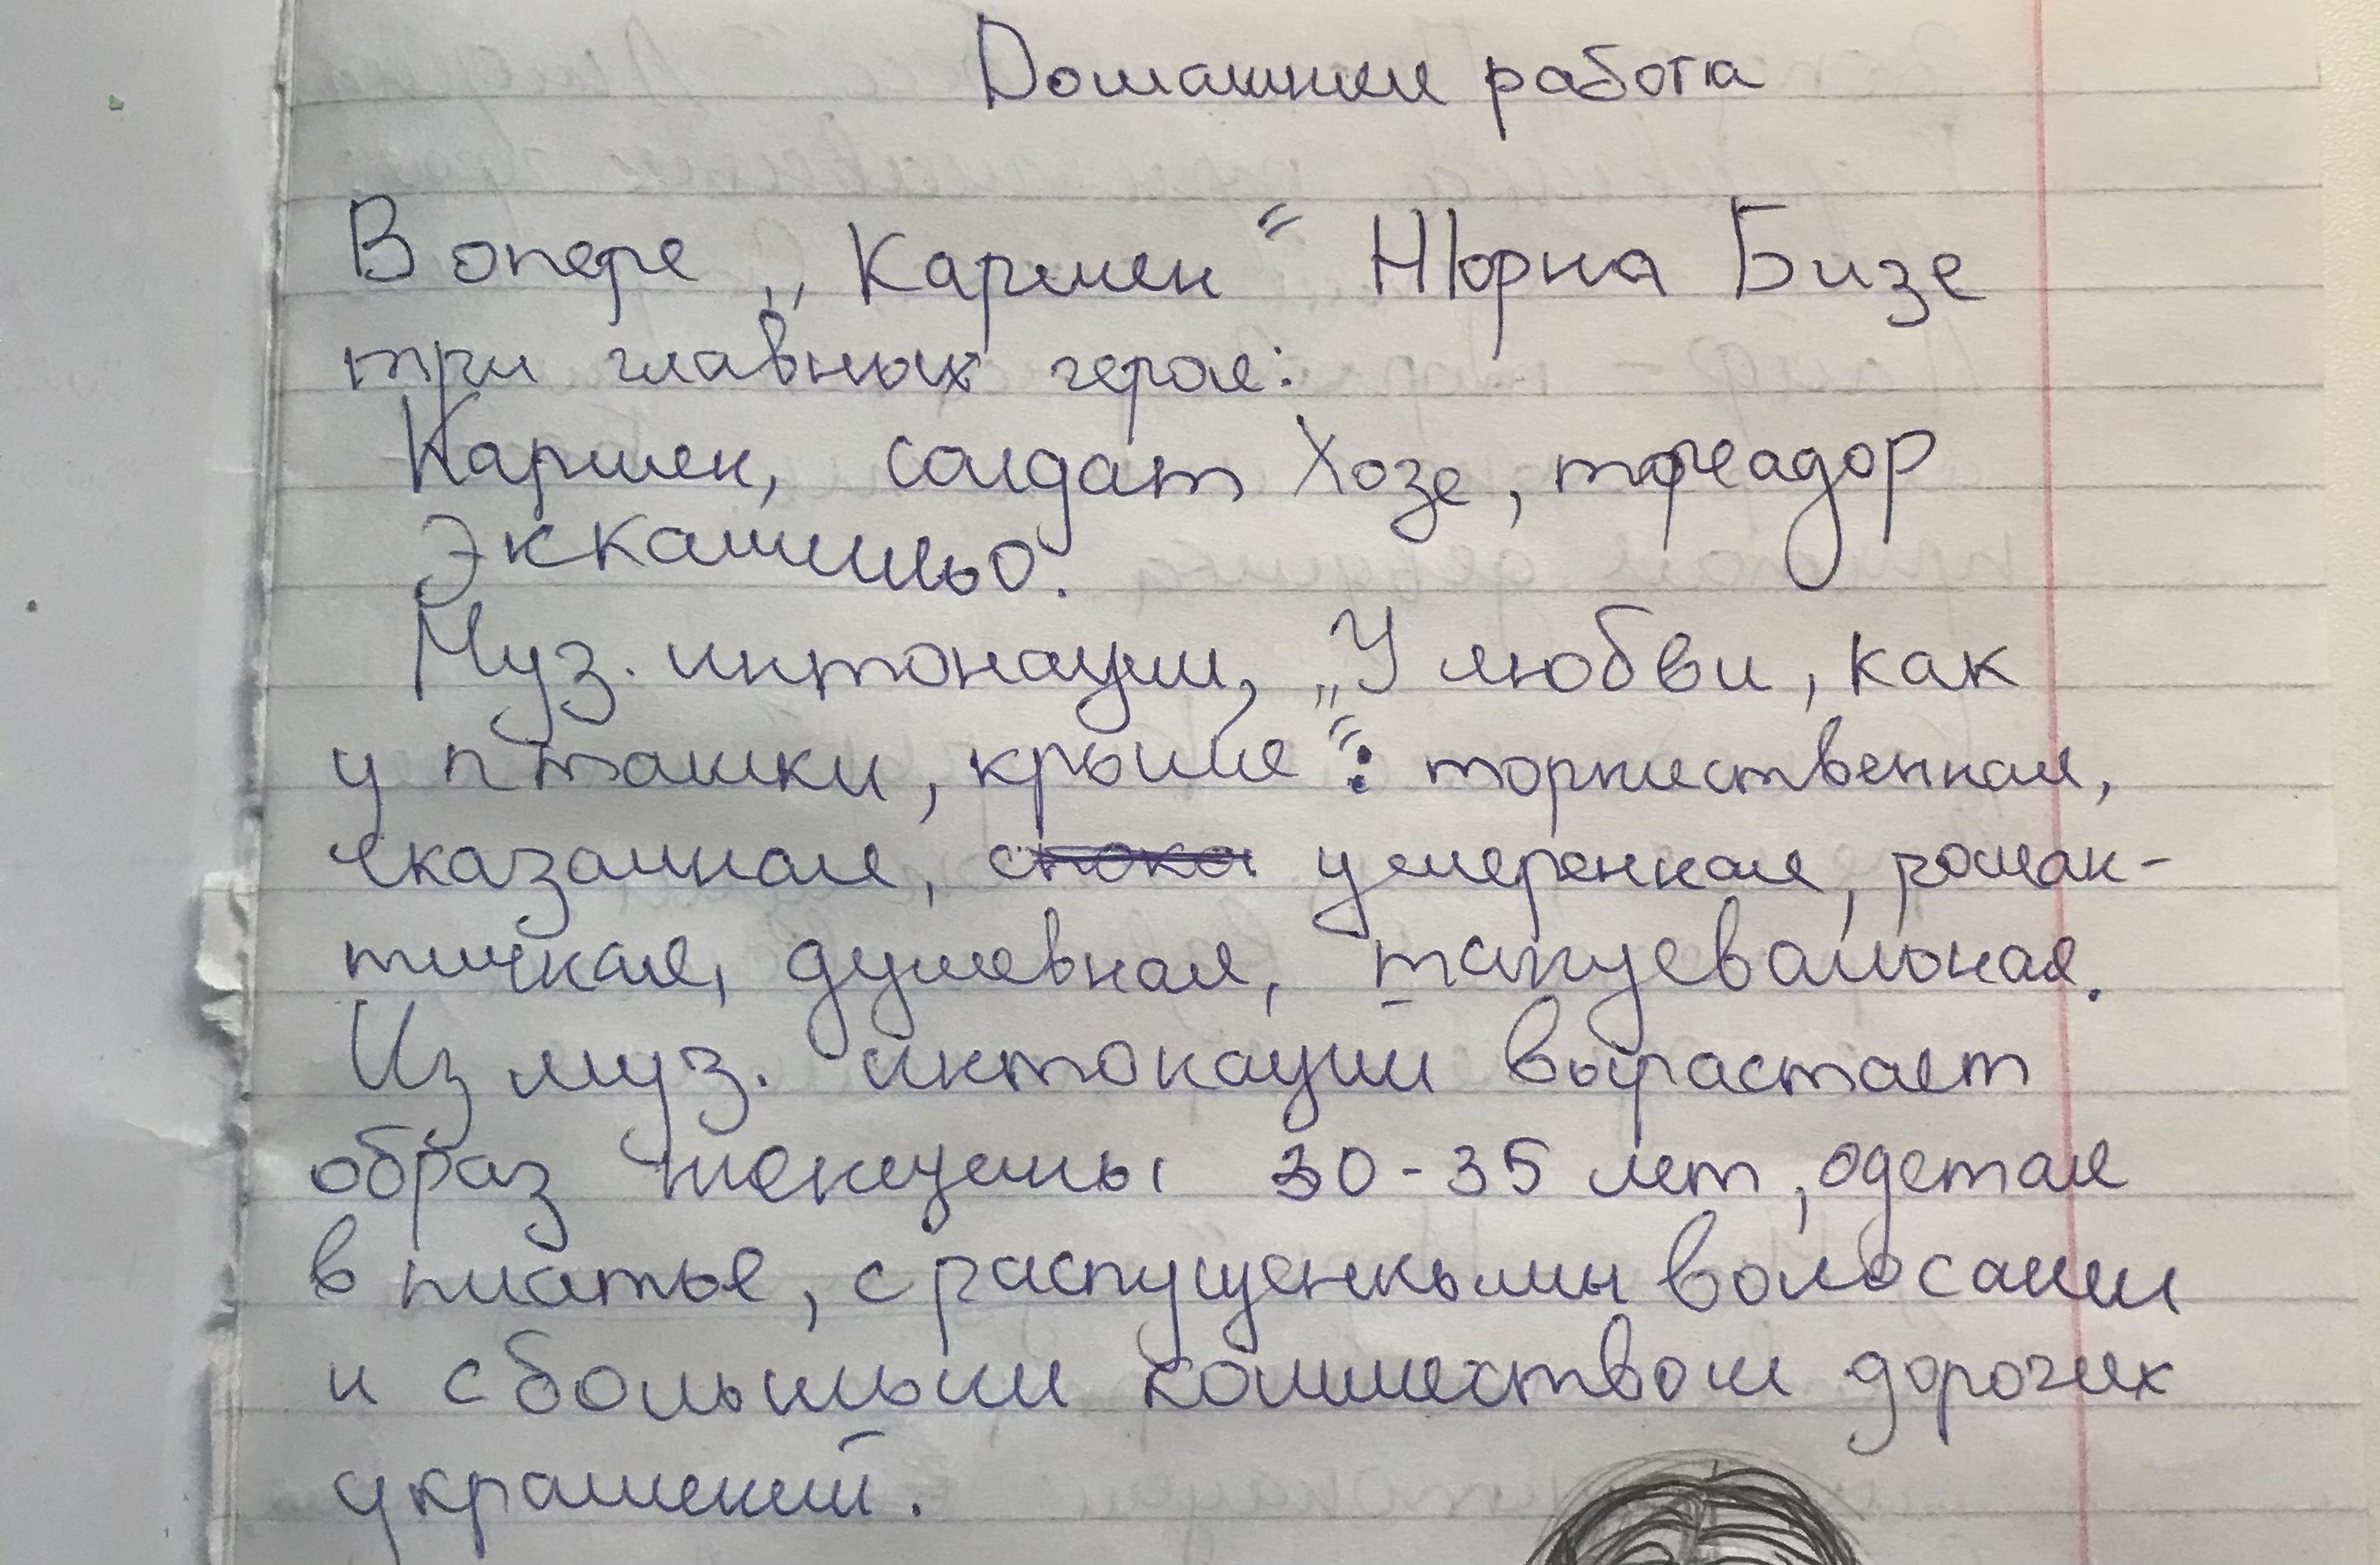 Домашняя работа
В опере „Кармен" Жоржа Бизе
три главных героя:
Кармен, солдат Хозе, тореадор
Эскамильо.
Муз. интонации, „У любви, как
у пташки, крылья": торжественная,
умеренная, роман-
тичная, душевная, танцевальная.
Из муз. интонации вырастает
образ женщины 30-35 лет, одетая
в платье, с распущенными волосами
и с большим количеством дорогих
украшений.